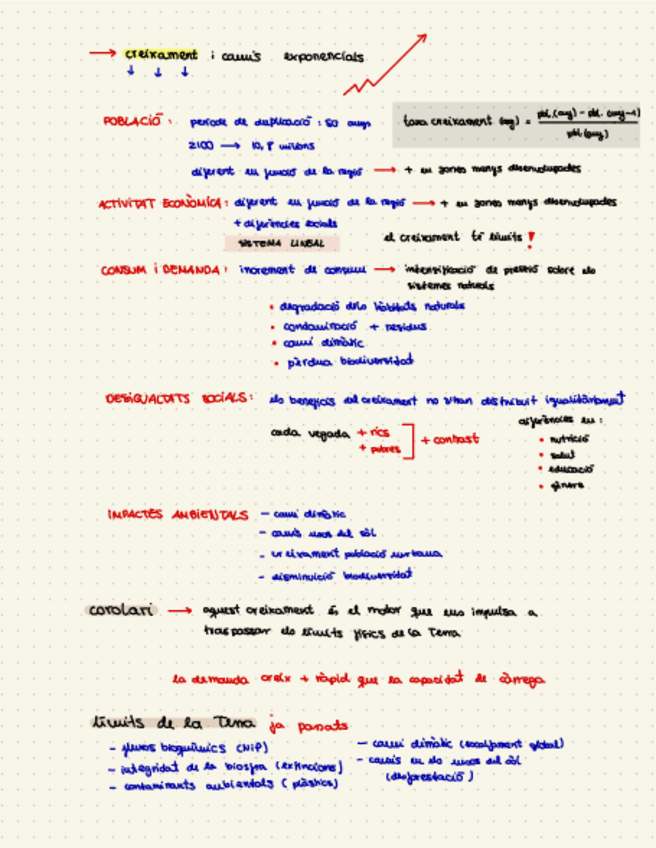 → creixament i canvis exponencials
POBLACIÓ: període de duplicació: 50 anys
taxa creixament (any) = pbl.(any) - pbl.(any-1) / pbl(any)
2100 → 10,8 milions
diferent en funció de la regió → + en zones menys desenvolupades
ACTIVITAT ECONÒMICA: diferent en funció de la regió → + en zones menys desenvolupades
+ diferències socials
SISTEMA LINEAL el creixament té límits !
CONSUM i DEMANDA: increment de consum → intensificació de pressió sobre els
sistemes naturals
• degradació dels hàbitats naturals
• contaminació + residus
• canvi climàtic
• pèrdua biodiversitat
DESIGUALTATS SOCIALS: els beneficis del creixament no s'han distribuit igualitàriament
cada vegada + rics
+ pobres
+ contrast
diferències en:
• nutrició
• salut
• educació
• gènere
IMPACTES AMBIENTALS - canvi climàtic
- canvis usos del sòl
- creixament població urbana
- disminució biodiversitat
corolari → aquest creixament és el motor que ens impulsa a
traspassar els límits físics de la Terra
la demanda creix + ràpid que la capacitat de càrrega
límits de la Terra ja passats
- fluxos bioquímics (NiP)
- integritat de la biosfra (extincions)
- contaminants ambientals (plàstics)
- canvi climàtic (escalfament global)
- canvis en els usos del sòl
(desforestació)